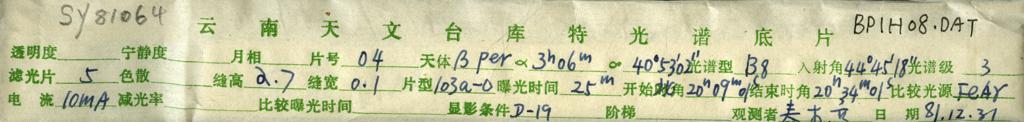 SY81064 云南天文台库特光谱底片 BP1H08.DAT
透明度 宁静度 月相 片号 04 天体 β per α 3h06m δ 40°53′02″ 光谱型 B8 入射角 44°45′18″ 光谱级 3
滤光片 5 色散 缝高 2.7 缝宽 0.1 片型 103a-O 曝光时间 25m 开始时角 20h09m01s 结束时角 20h34m01s 比较光源 FeAr
电流 10mA 减光率 比较曝光时间 显影条件 D-19 阶梯 观测者 日期 81.12.31